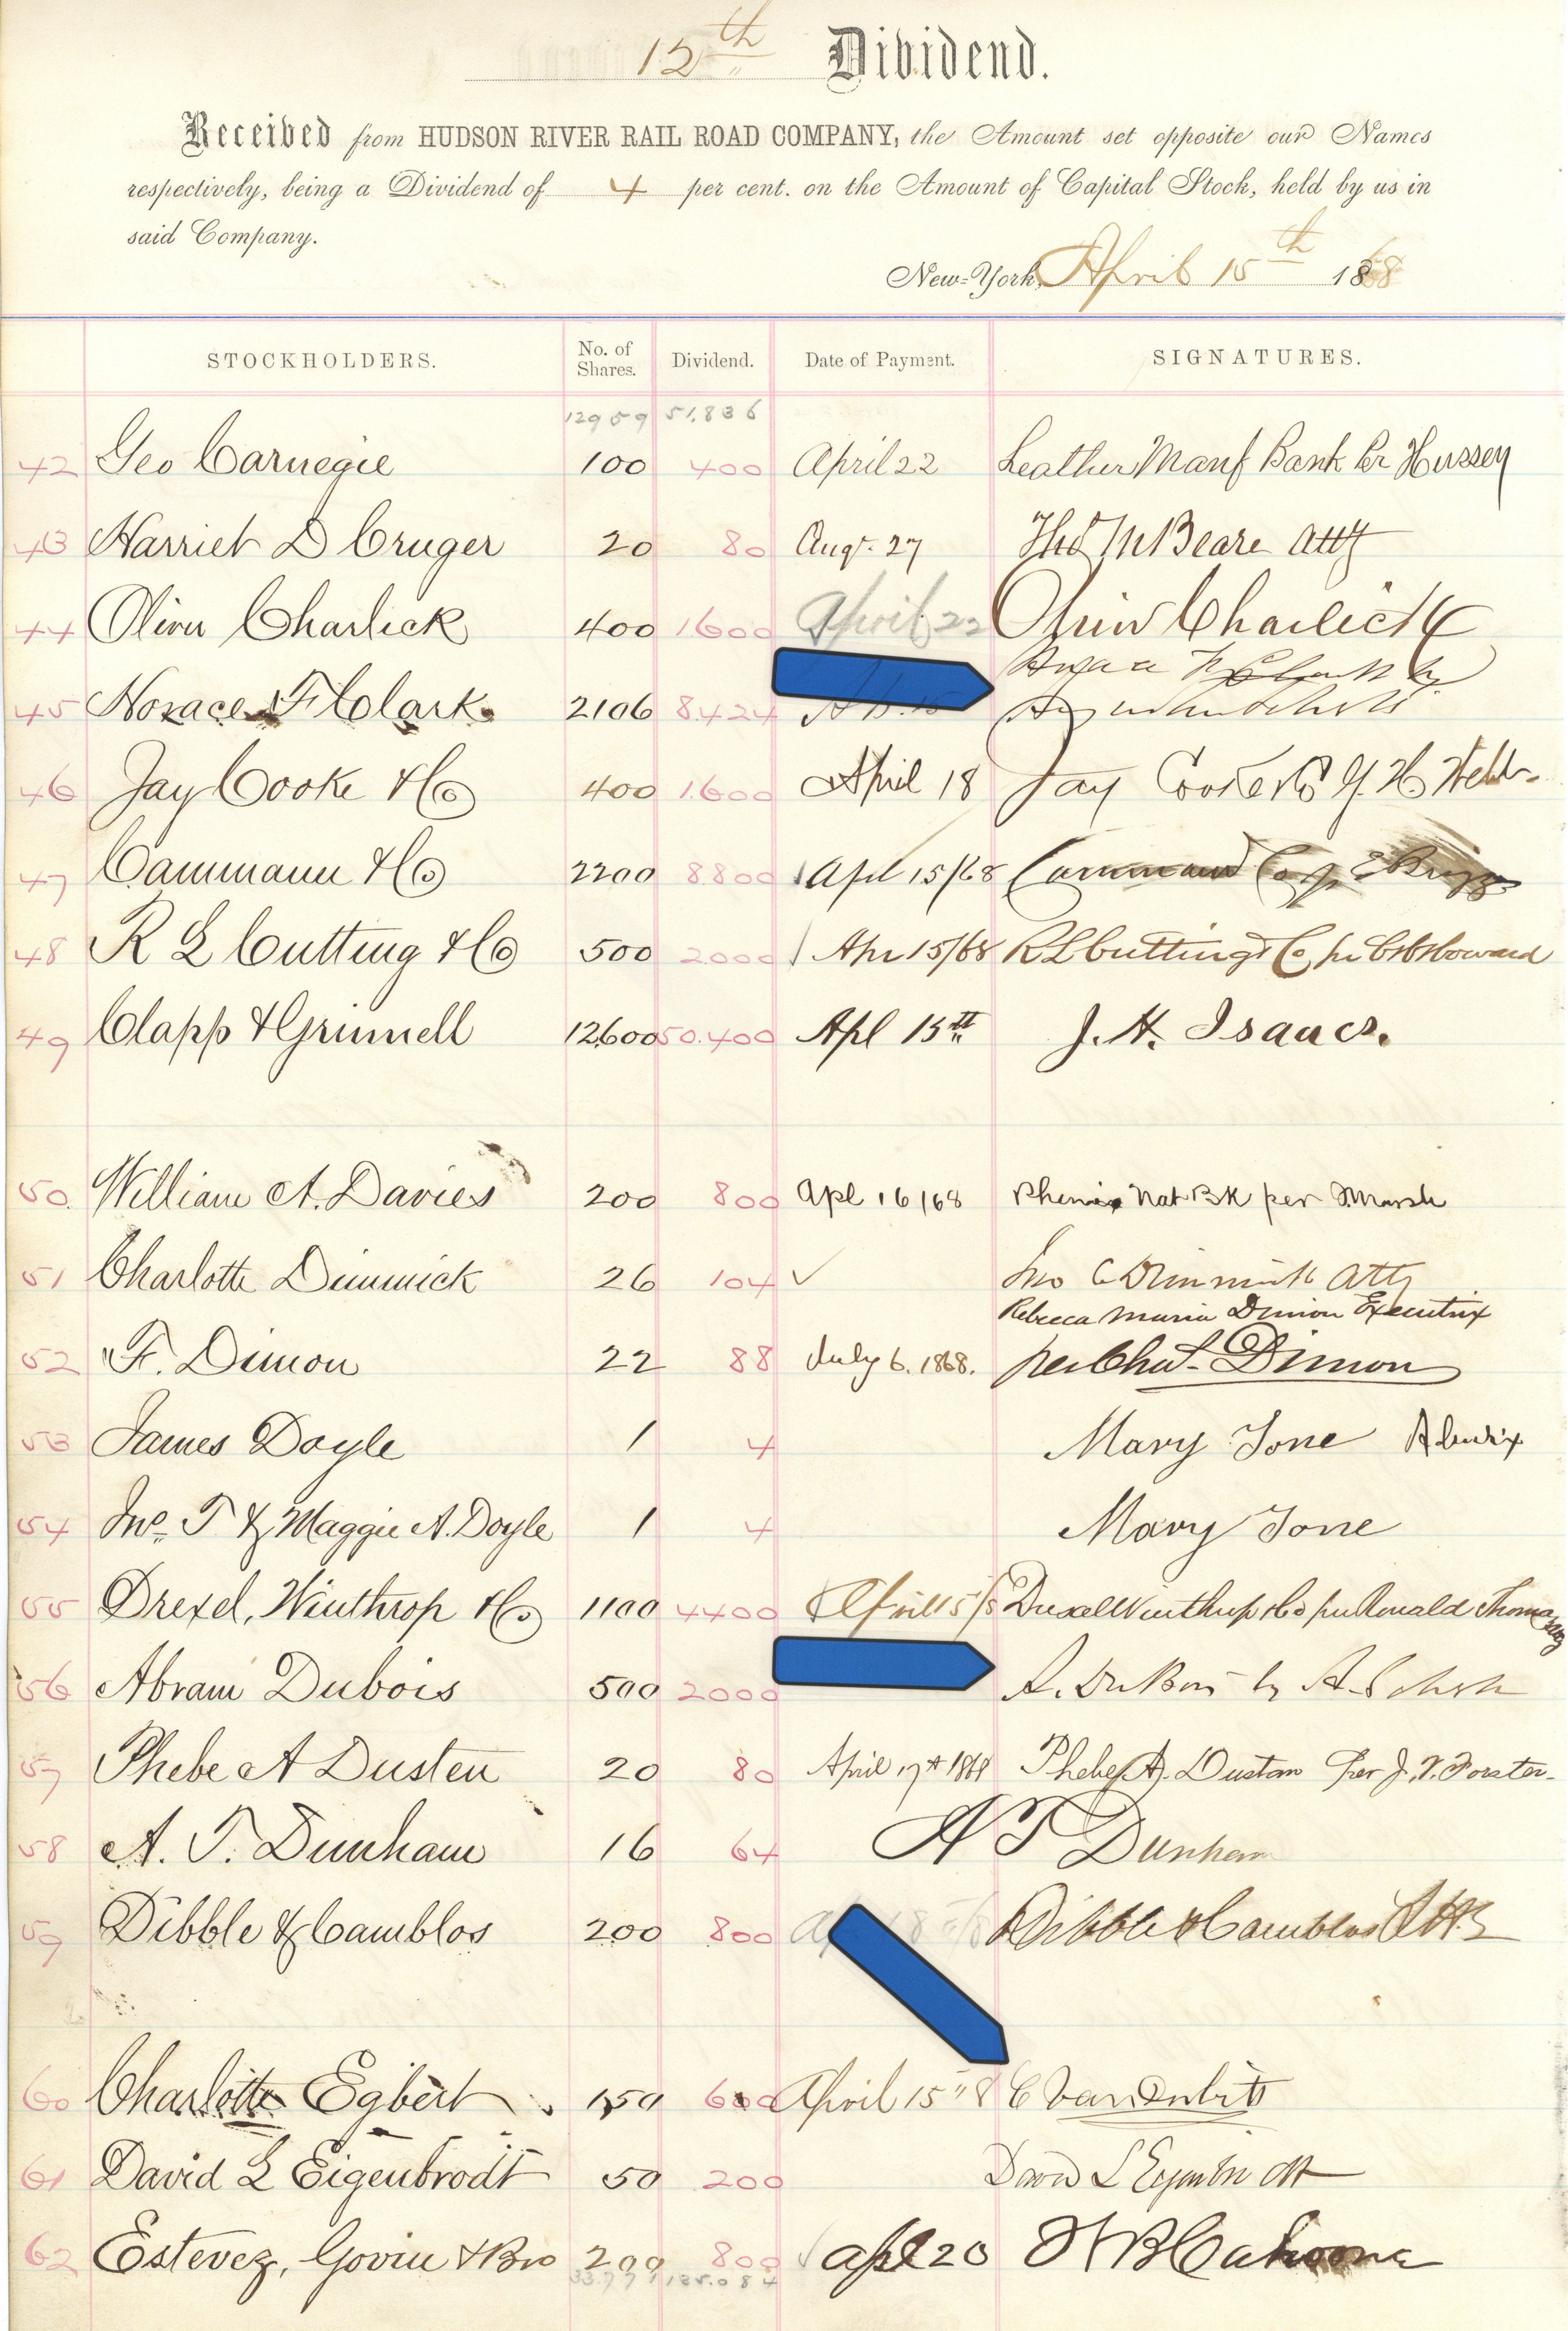 12th Dividend.
Received from HUDSON RIVER RAIL ROAD COMPANY, the Amount set opposite our Names
respectively, being a Dividend of 4 per cent. on the Amount of Capital Stock, held by us in
said Company.
New-York, April 15th 1868
STOCKHOLDERS. No. of Shares. Dividend. Date of Payment. SIGNATURES.
12959 51.836
42 Geo Carnegie 100 400 April 22 Leather Manf Bank Pr Hussey
43 Harriet D Cruger 20 80 Augt. 27 Thos M Beare Atty
44 Oliver Charlick 400 1600 April 22 Oliver Charlick
45 Horace F Clark 2106 8.424 Horace F Clark by
46 Jay Cooke & Co 400 1.600 April 18 Jay Cooke & Co
47 Cammann & Co 2200 8.800 Apl 15/68 Cammann & Co
48 R L Cutting & Co 500 2000 Apr 15/68 R L Cutting & Co
49 Clapp & Grinnell 12600 50.400 Apl 15th J. H. Isaacs.
50. William A. Davies 200 800 Apl 16/68 Phenix Nat Bk per Marsh
51 Charlotte Dimmick 26 104 ✓ Jno C Dimmick Atty
Rebecca Maria Dimon Executrix
52 F. Dimon 22 88 July 6. 1868. per Chas. Dimon
53 James Doyle 1 4 Mary Tone
54 Jno. T & Maggie A. Doyle 1 4 Mary Tone
55 Drexel, Winthrop & Co 1100 4400 April 15/ Drexel Winthrop & Co per Ronald Thomas
56 Abram Dubois 500 2000 A. DuBois by
57 Phebe A Dusten 20 80 April 17th 1868 Phebe A. Dustan Per J. V. Forster
58 A. T. Dunham 16 64 A T Dunham
59 Dibble & Camblos 200 800 Dibble & Camblos
60 Charlotte Egbert 150 600 April 15 "8 C Vanderbilt
61 David L Eigenbrodt 50 200 David L Eigenbrodt
62 Estevez, Govin & Bro 200 800 Apl 20 Cahoone
135.084